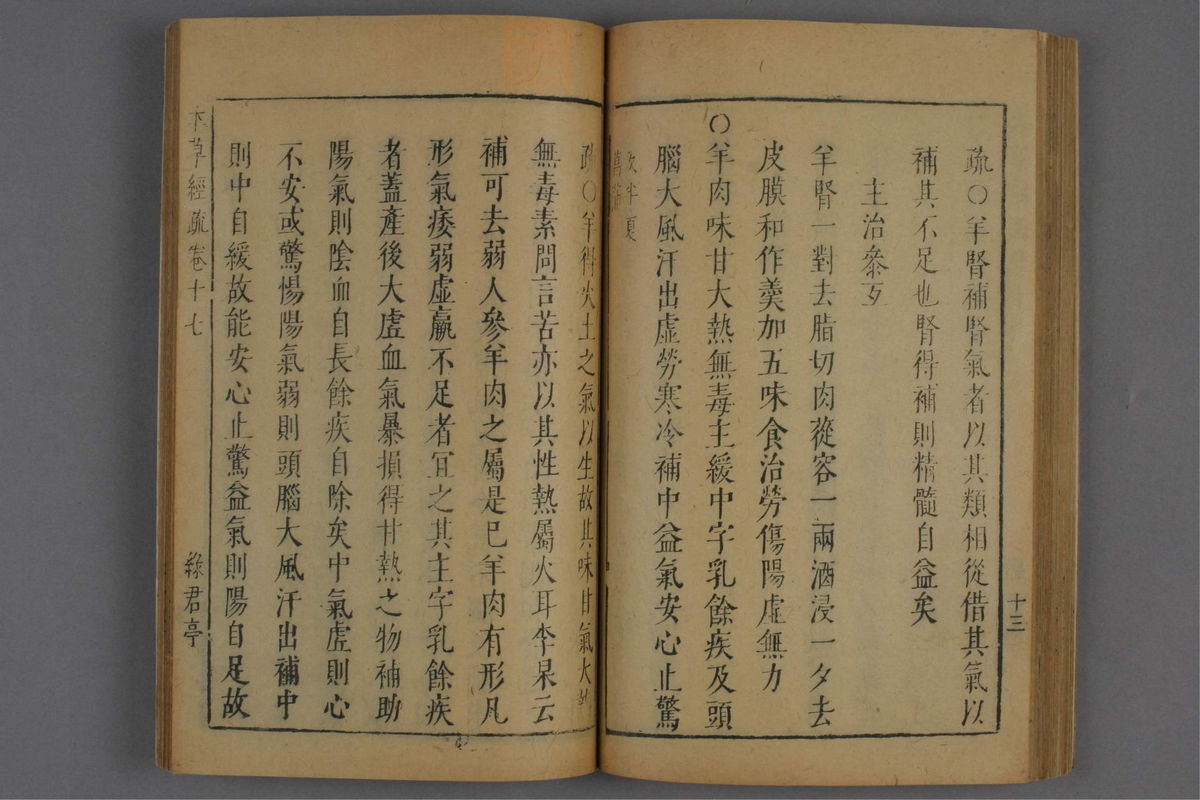 疏〇羊腎補腎氣者以其類相從借其氣以
補其不足也腎得補則精髓自益矣
主治參互
羊腎一對去脂切肉蓯容一兩酒浸一夕去
皮膜和作羹加五味食治勞傷陽虛無力
〇羊肉味甘大熱無毒主緩中字乳餘疾及頭
腦大風汗出虛勞寒冷補中益氣安心止驚
半夏
十三
疏〇羊得火土之氣以生故其味甘氣大熱
無毒素問言苦亦以其性熱屬火耳李杲云
補可去弱人參羊肉之屬是已羊肉有形凡
形氣痿弱虛羸不足者宜之其主字乳餘疾
者蓋產後大虛血氣暴損得甘熱之物補助
陽氣則陰血自長餘疾自除矣中氣虛則心
不安或驚惕陽氣弱則頭腦大風汗出補中
則中自緩故能安心止驚益氣則陽自足故
本草經疏卷十七
綠君亭